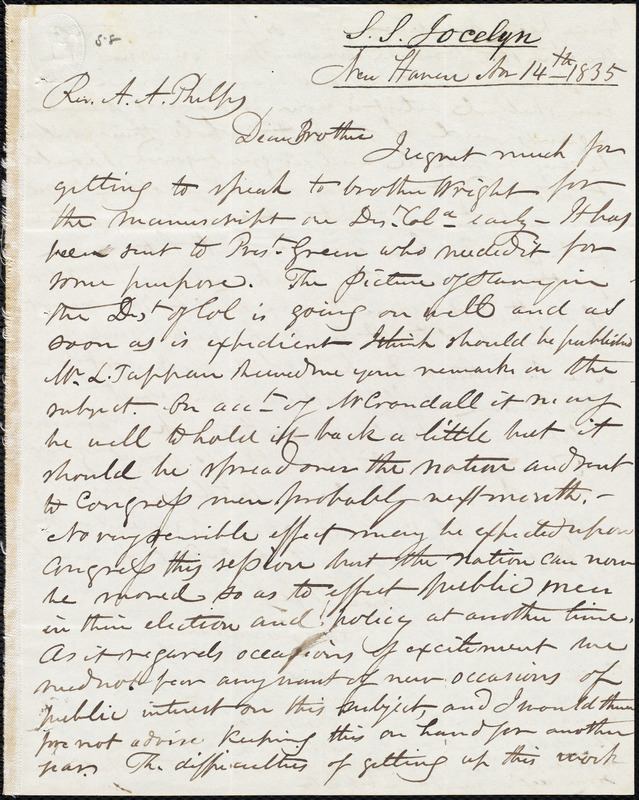 S. S. Jocelyn
New Haven Nov 14th 1835
Rev. A. A. Phelps
Dear Brother I regret much for
getting to speak to brother Wright for
the manuscript on Dist. Cola early - It has
been sent to Prest. Green who needed it for
some purpose. The Picture of Slavery in
the Dist of Col is going on well and as
soon as is expedient I think should be published
Mr. L. Tappan showed me your remarks on the
subject. On acct of Mr Crandall it may
be well to hold it back a little but it
should be spread over the nation and sent
to Congress men probably next month. -
No very sensible effect may be expected upon
Congress this session but the nation can now
be moved so as to effect public men
in their election and policy at another time.
As it regards occasions of excitement we
need not fear any want of new occasions of
public interest on this subject, and I would there
fore not advise keeping this on hand for another
year. The difficulties of getting up this work